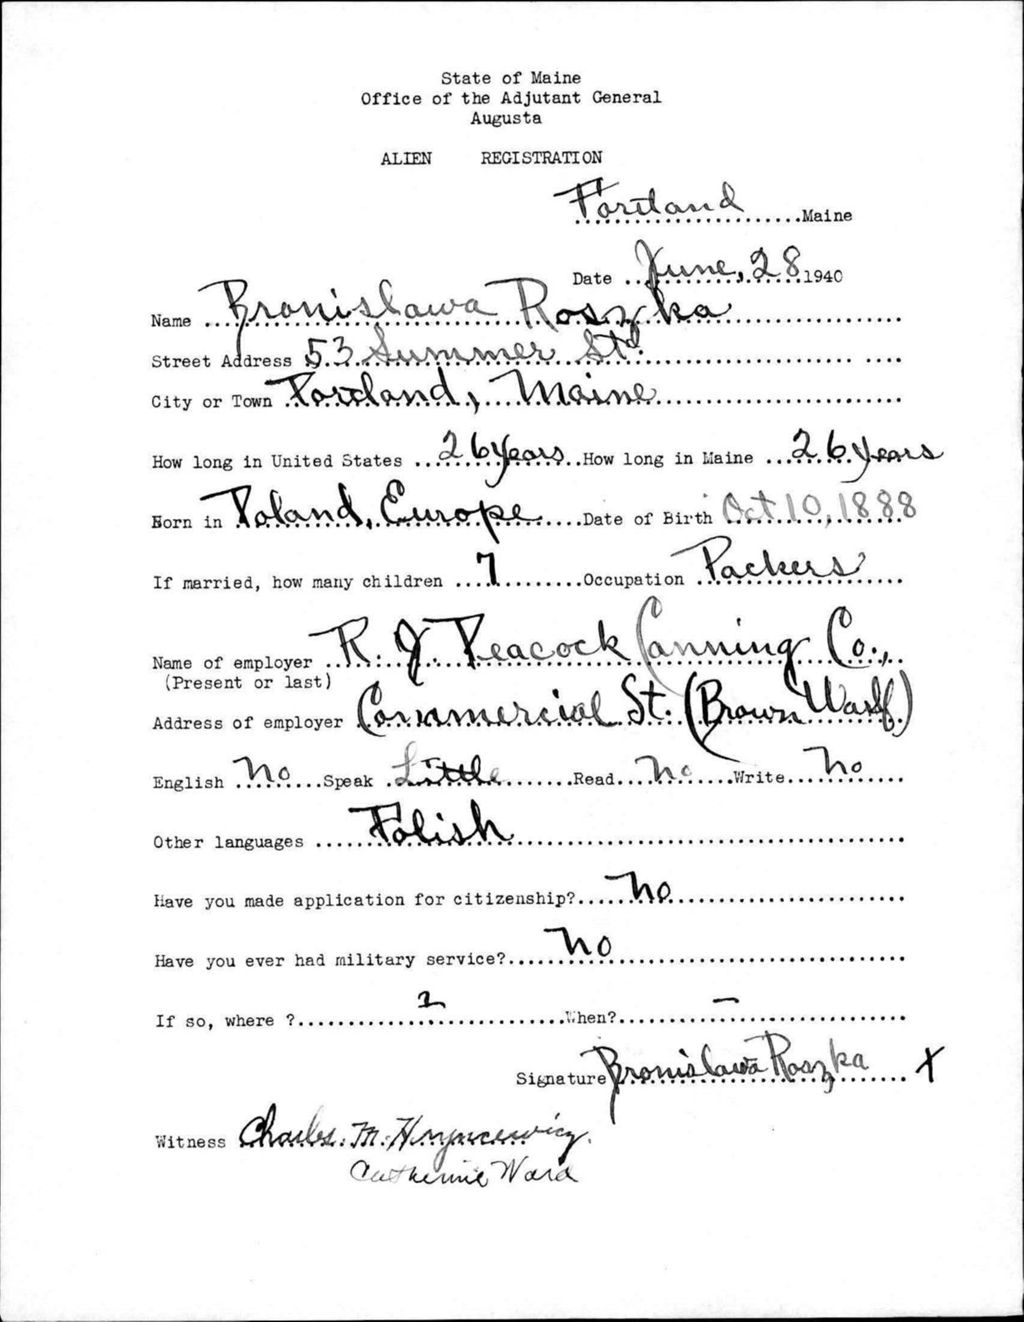 State of Maine
Office of the Adjutant General
Augusta
ALIEN REGISTRATION
Portland Maine
Date June, 28 1940
Name Bronislawa Roszka
Street Address 53 Summer St.
City or Town Portland, Maine
How long in United States 26 years How long in Maine 26 years
Born in Poland, Europe Date of Birth Oct 10, 1888
If married, how many children 7 Occupation Packers
Name of employer R. J. Peacock Canning Co.,
(Present or last)
Address of employer Commercial St. (Brown Warf)
English No Speak Little Read No Write No
Other languages Polish
Have you made application for citizenship? No
Have you ever had military service? No
If so, where ? When? —
Signature Bronislawa Roszka X
Witness Charles. M.
Catherine Ward